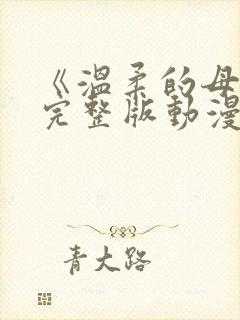 《溫柔的母
完整版動漫
青大路